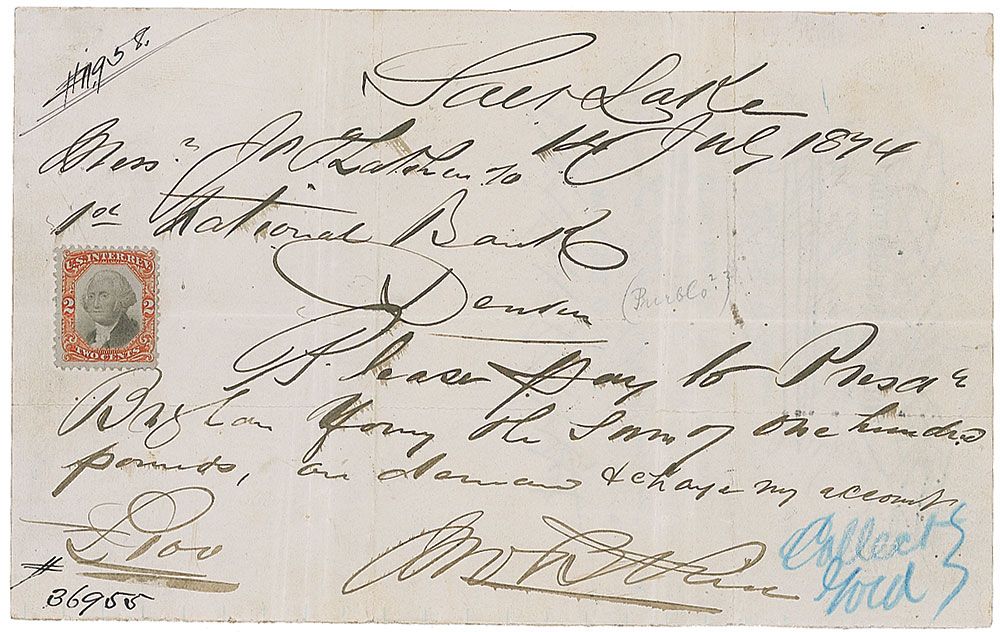 #11958.
Salt Lake
14 July 1874
Mess.rs J. Thatcher &
1st National Bank
Denver
(Pueblo??)
U.S. INTER. REV.
2 2
TWO CENTS
Please pay to Presdt
Brigham Young the Sum of One hundred
pounds, on demand & charge my account
£100
Collect
Gold
#
36955